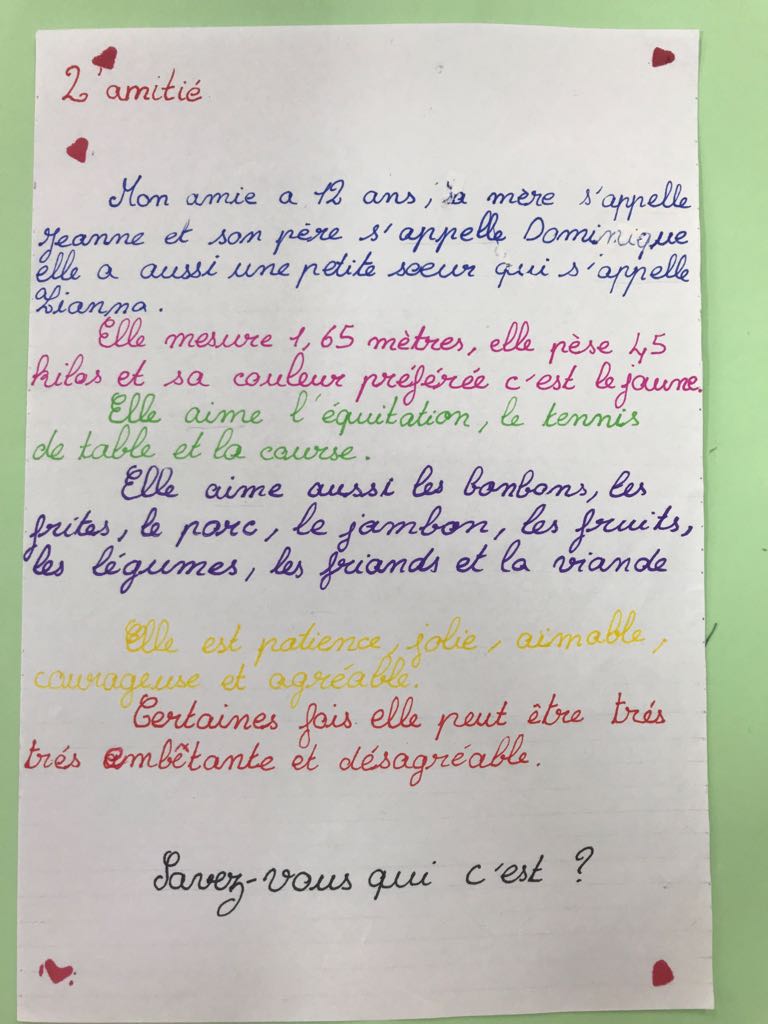 L'amitié
Mon amie a 12 ans, sa mère s'appelle
Jeanne et son père s'appelle Dominique
elle a aussi une petite sœur qui s'appelle
Lianna.
Elle mesure 1,65 mètres, elle pèse 45
kilos et sa couleur préférée c'est le jaune.
Elle aime l'équitation, le tennis
de table et la course.
Elle aime aussi les bonbons, les
frites, le parc, le jambon, les fruits,
les légumes, les friands et la viande
Elle est patience, jolie, aimable,
courageuse et agréable.
Certaines fois elle peut être trés
trés embêtante et désagréable.
Savez-vous qui c'est ?